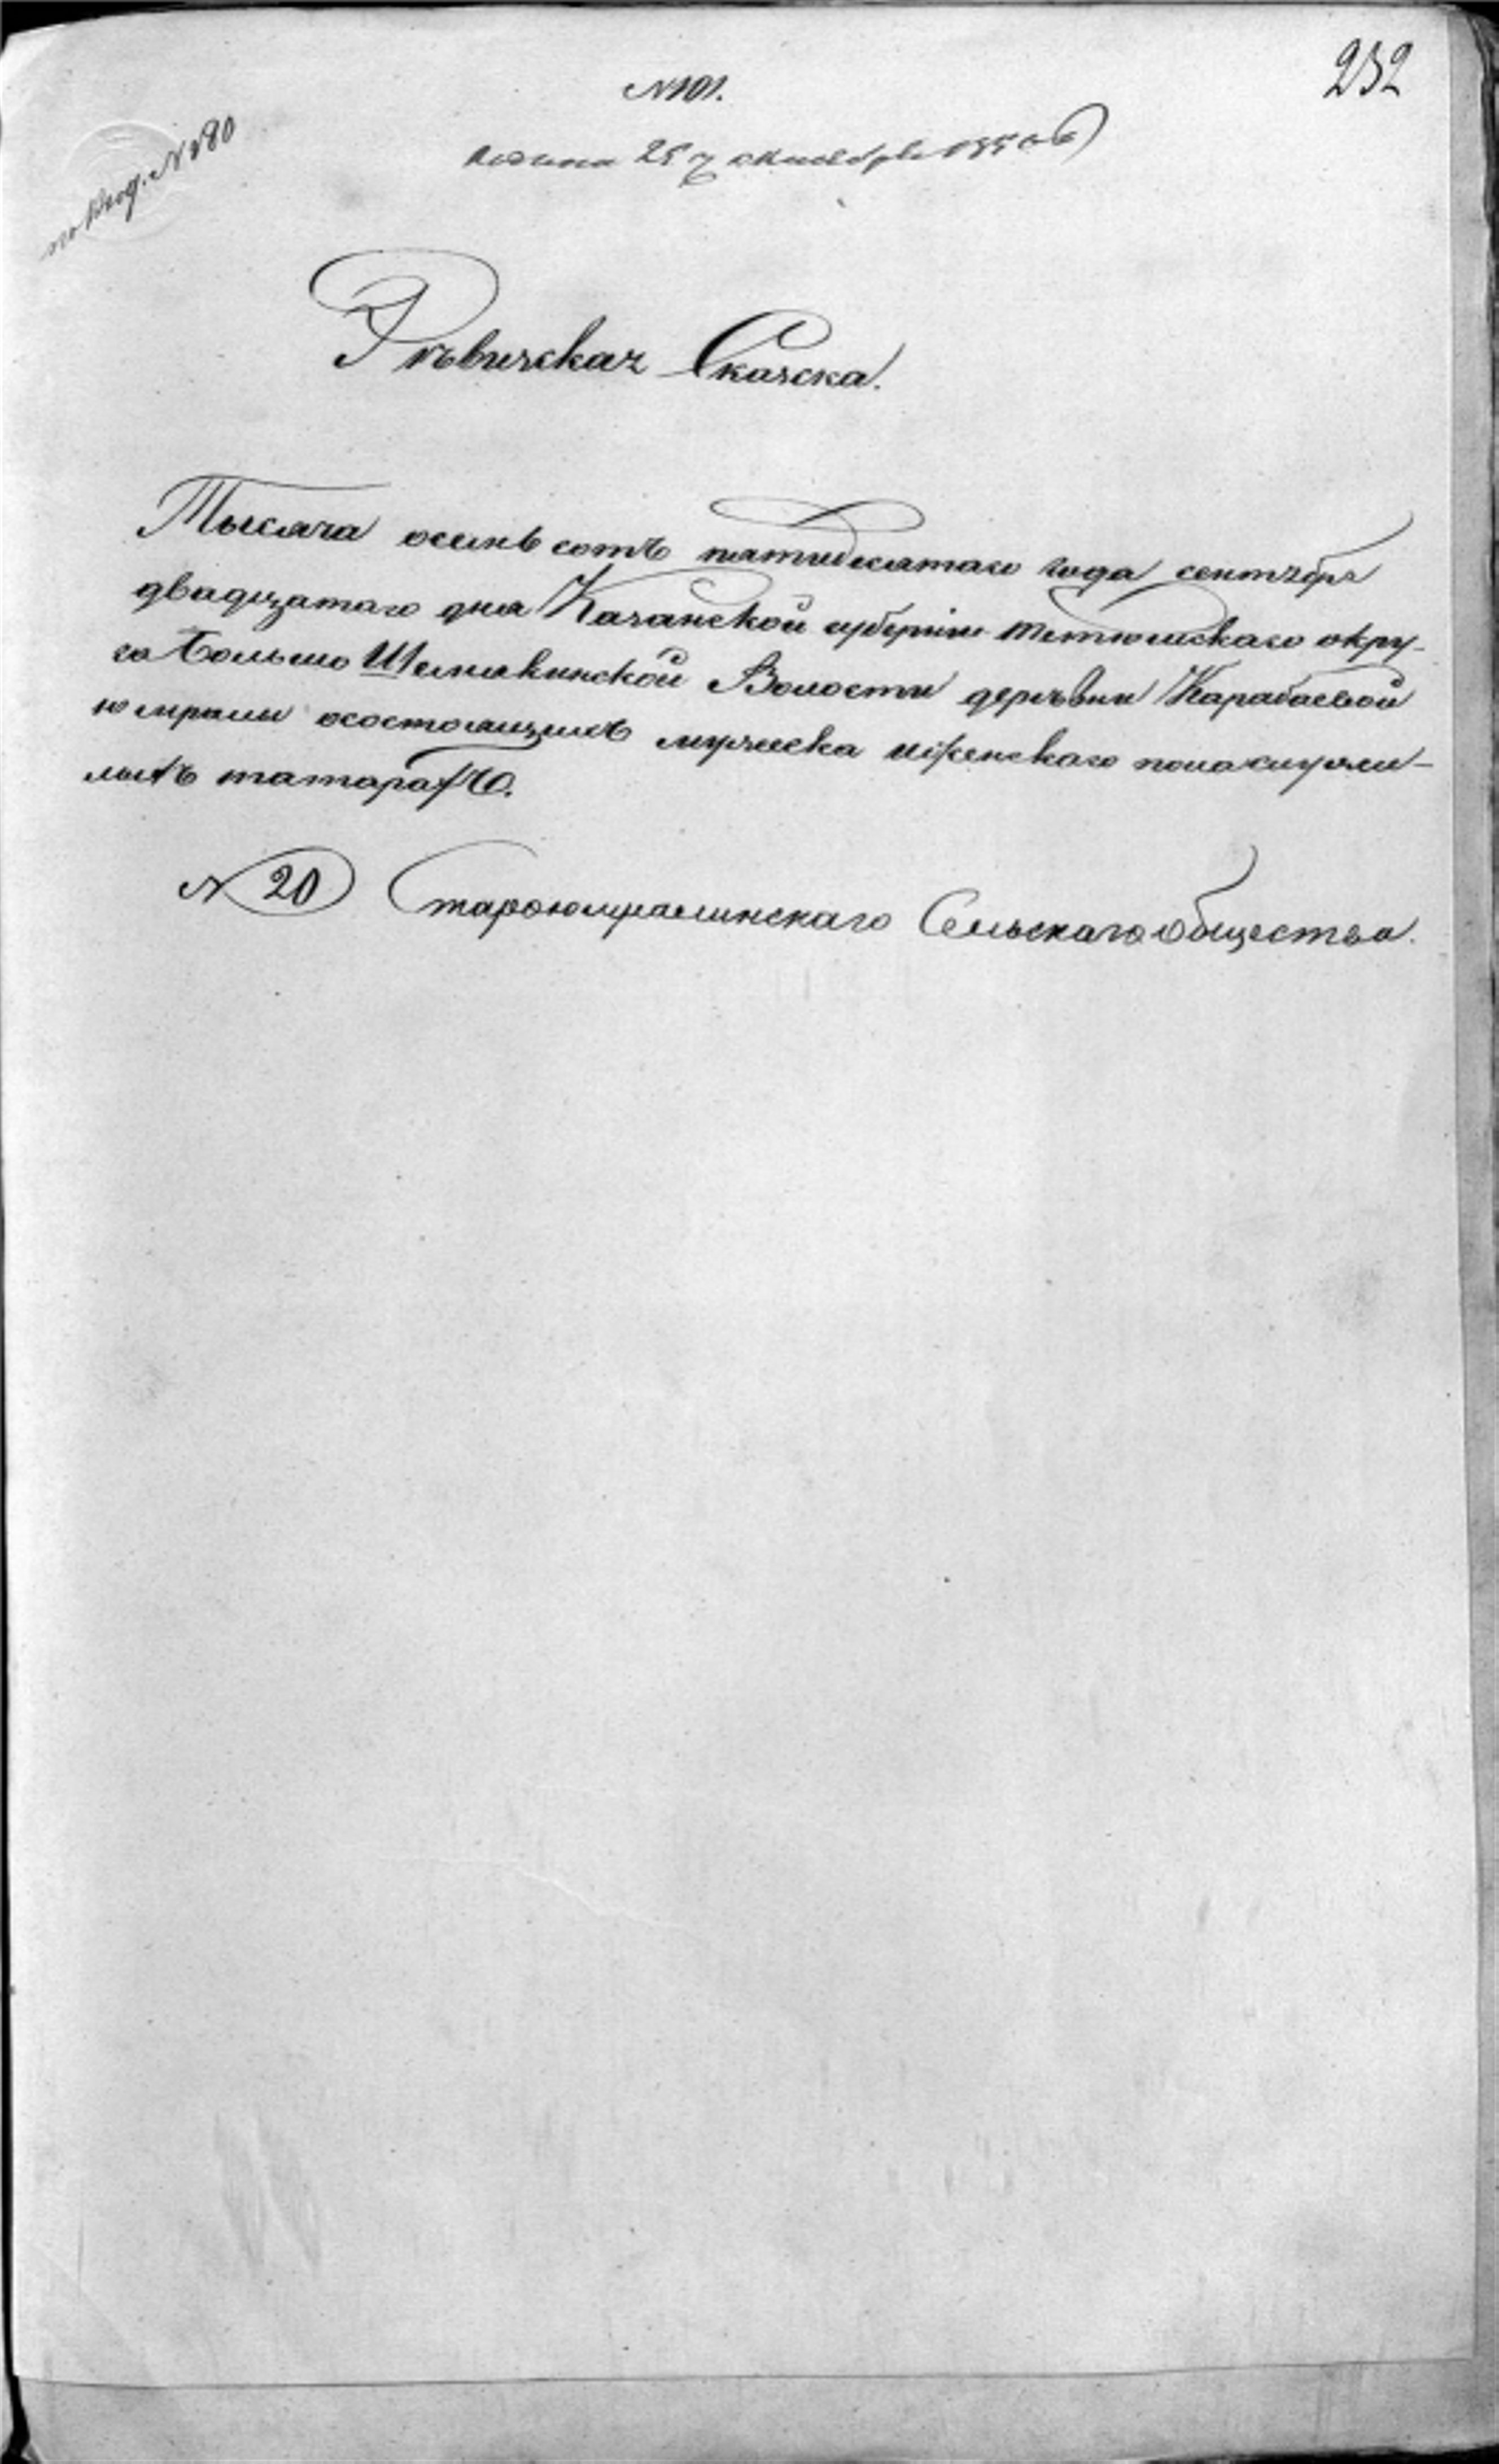 232
№101.
по вход. №280
подана 25 октября 1850 г.
Ревизская Сказка.
Тысяча осемь сотъ пятидесятаго года сентября
двадцатаго дня Казанской губерніи тетюшскаго окру-
га Большо Шемякинской Волости деревни Карабаевой
юмралы осостоящихъ мужеска иженскаго пола служи-
лыхъ татарахъ.
№ 20 Староюмралинскаго Сельскаго общества.